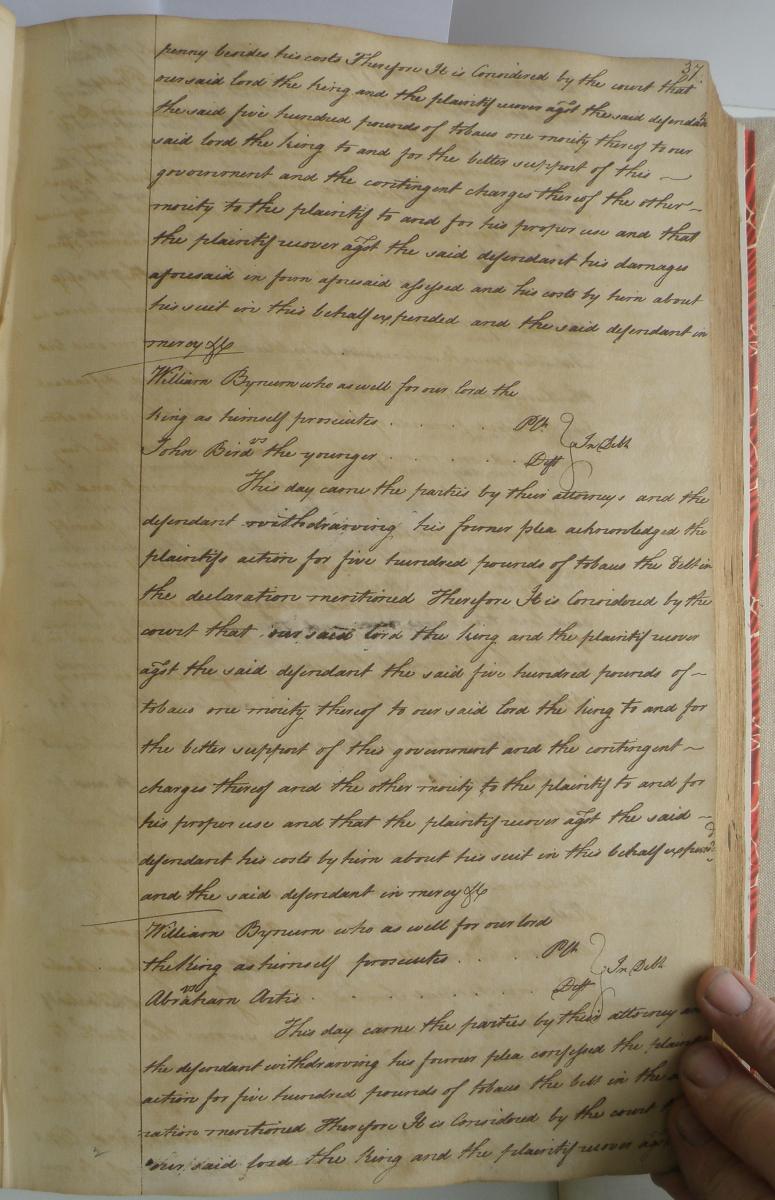 37.
penny besides his costs Therefore It is Considered by the court that
our said lord the king and the plaintif recover agst the said defendant
the said five hundred pounds of tobaco one moiety thereof to our
said lord the king to and for the better support of this
government and the contingent charges thereof the other
moity to the plaintif to and for his proper use and that
the plaintif recover agst the said defendant his damages
aforesaid in form aforesaid assessed and his costs by him about
his suit in this behalf expended and the said defendant in
mercy &c
William Bynum who as well for our lord the
king as himself prosecutes . . . . Plt
vs } In Debt
John Bird the younger . . . . Deft
This day came the parties by their attorneys and the
defendant withdrawing his former plea acknowledged the
plaintifs action for five hundred pounds of tobaco the Debt in
the declaration mentioned Therefore It is Considered by the
court that our said lord the king and the plaintif recover
agst the said defendant the said five hundred pounds of
tobaco one moiety thereof to our said lord the king to and for
the better support of this government and the contingent
charges thereof and the other moity to the plaintif to and for
his proper use and that the plaintif recover agst the said
defendant his costs by him about his suit in this behalf expend
and the said defendant in mercy &c
William Bynum who as well for our lord
the King as himself prosecutes . . . Plt
vs } In Debt
Abraham Artis . . . . . Deft
This day came the parties by their attorney
the defendant withdrawing his former plea confessed the
action for five hundred pounds of tobaco the debt in the
ration mentioned Therefore It is Considered by the court
our said lord the King and the plaintif recover